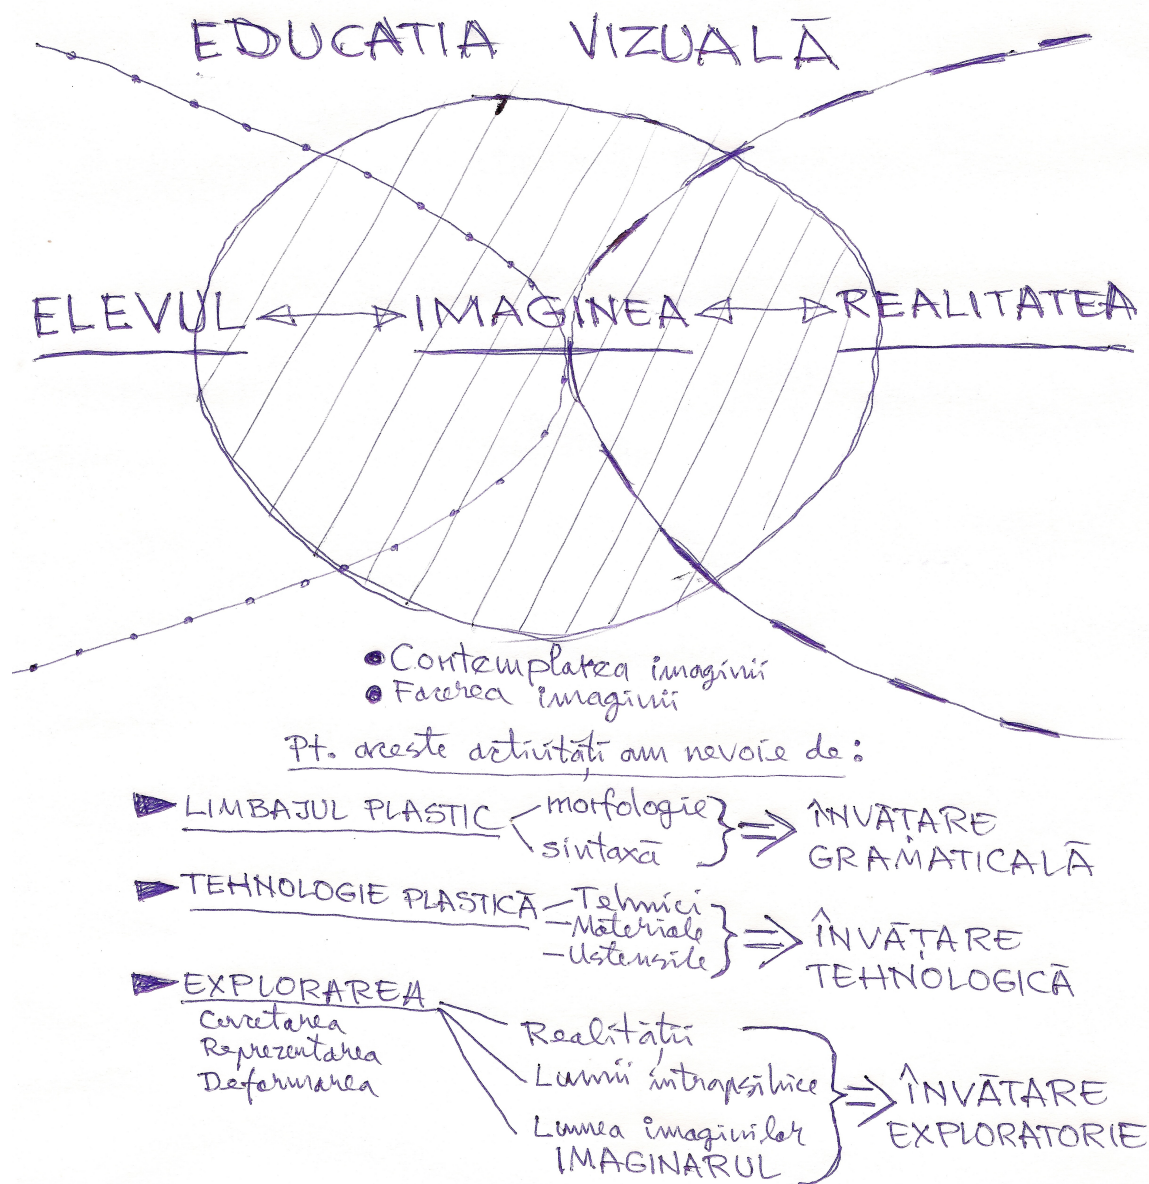 EDUCATIA VIZUALĂ
ELEVUL IMAGINEA REALITATEA
Contemplarea imaginii
Facerea imaginii
Pt. aceste activități am nevoie de:
LIMBAJUL PLASTIC morfologie
sintaxă
ÎNVĂȚARE
GRAMATICALĂ
TEHNOLOGIE PLASTICĂ Tehnici
Materiale
Ustensile
ÎNVĂȚARE
TEHNOLOGICĂ
EXPLORAREA
Cercetarea
Reprezentarea
Deformarea
Realității
Lumii intrapsihice
Lumea imaginilor
IMAGINARUL
ÎNVĂTARE
EXPLORATORIE